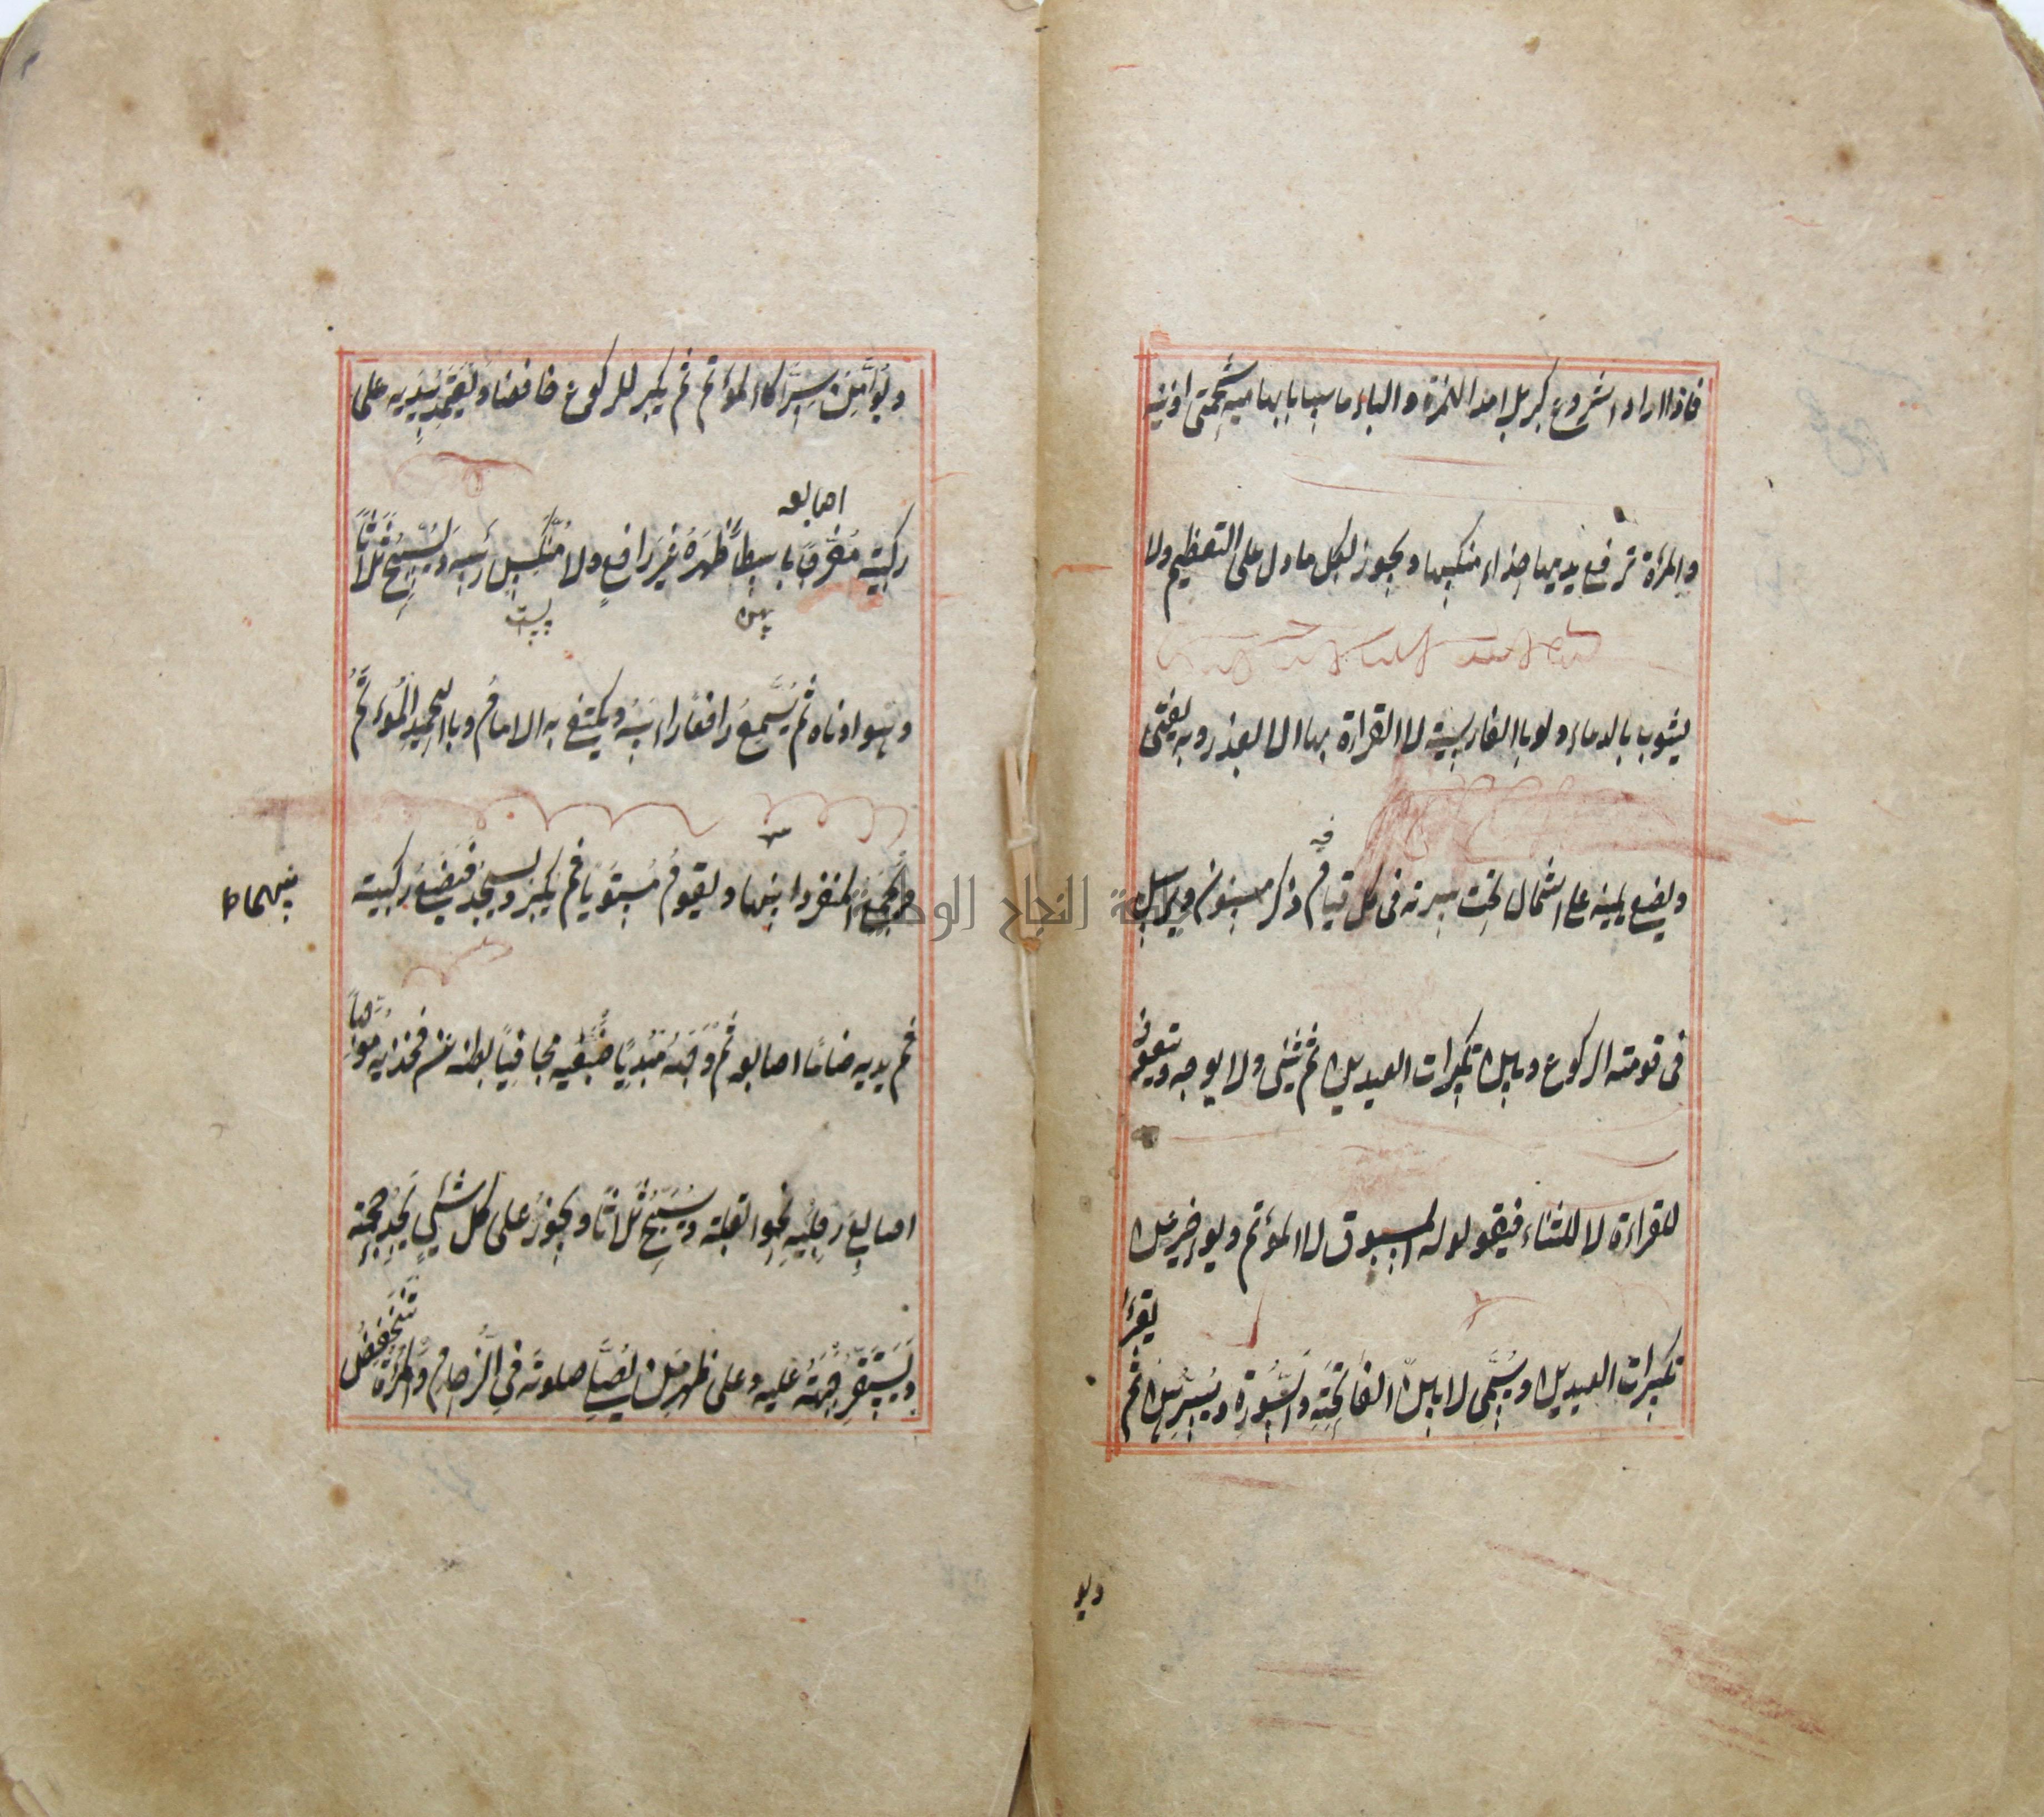 فاذا اراد الشروع كبر بلا مد الهمزة والباء ماسا بابهاميه شحمتى اذنيه
والمرأة ترفع يديها حذاء منكبيها ويجوز لكل ما دل على التعظيم ولا
يشوب بالدعاء ولو باالفارسية لا القراءة بها الا لعذر وبه يفتى
فيه
ويضع يمينه على الشمال تحت سرته فى كل قيام ذكر مسنون ويرسل
فى قومته الركوع وبين تكبيرات العيدين ثم يثنى ولا يوجه ويتعوذ
للقراءة لا للثناء فيقولوله المسبوق لا المؤتم ويوخر عن
يقرأ
تكبيرات العيدين ويسمّى لا بين الفَاتِحَةِ والسُّورَةِ ويُسِرُّهُنَّ ثم
ويو
ويؤَمِّن سِرًّا كالمؤتم ثم يكبر للركوع خافضا ويَعْتَمِدُ بِيَدَيه على
اصابعه
ركبتيه مُفَرِّجًا باسِطًا ظَهرَهُ غيرَ رافعٍ ولا مُنَكِّسٍ رأسه ويُسَبِّحُ ثَلاثًا
پهن
پست
وهو ادناه ثم يُسَمِّعُ رافعًا راسَهُ ويكتفى به الامامُ وباالتحميدِ المُؤتَمُّ
ويَجمَعُ المنفرد بينهما ويقومُ مُستويا ثم يكبر ويسجُدُ فيَضَعُ ركبتيه
بينهما ط
ثم يديه ضامًا اصابعه ثم وَجهَهُ مُبْدِيًا ضَبْعَيه مجافيًا بطنه عن فخذيه مُوَجِّهًا
اصابعَ رِجلَيهِ نحوا لقبلة ويُسَبِّحُ ثلاثًا ويجوزُ على كل شئٍ يَجِدُ حجمَه
تنخفض
ويَستَقِرُّ جَبهَتُهُ عليه وعلى ظهرِ مَن يُصَلِّي صلوتَه فى الزِّحامِ والمرأة